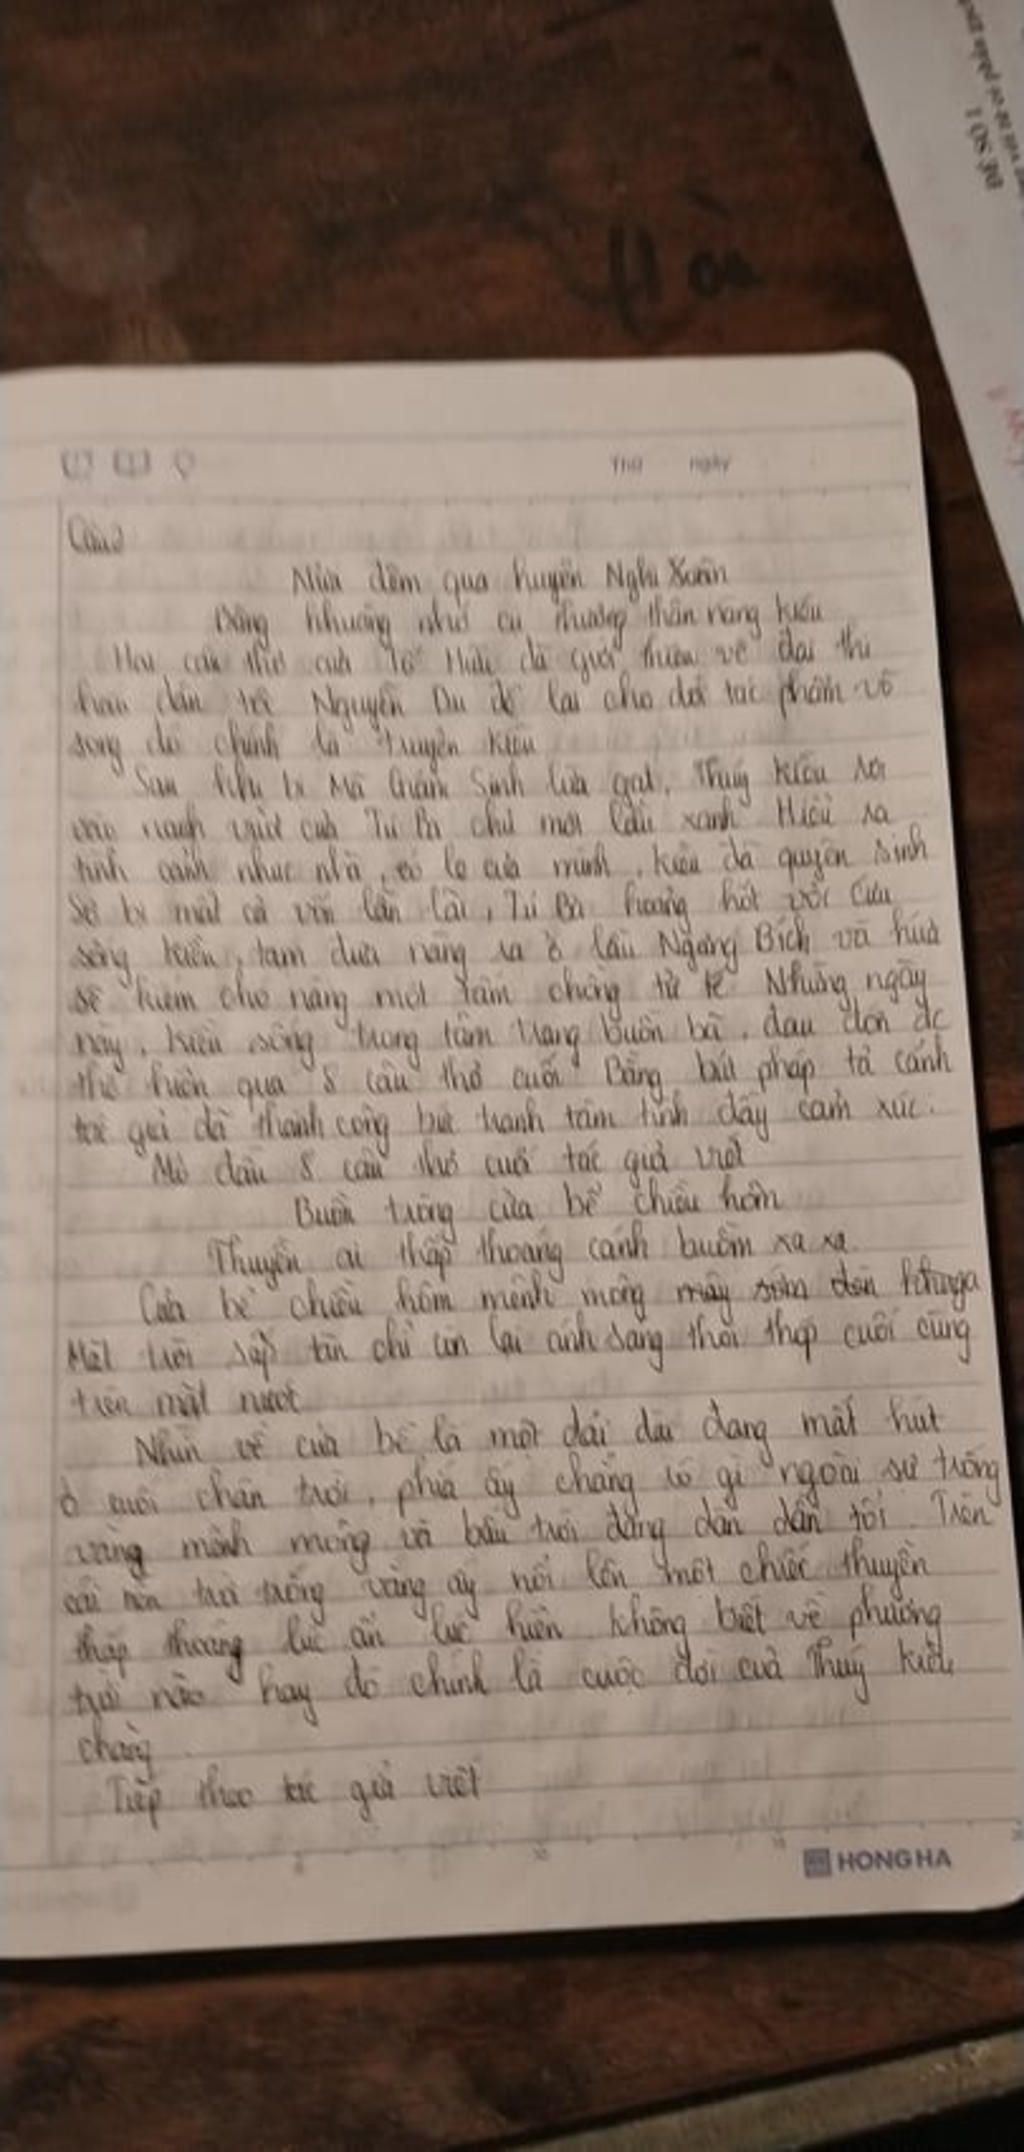 ĐỀ SỐ 1
Thứ ngày
Câu2
Nửa đêm qua huyện Nghi Xuân
Bâng khuâng nhớ cụ thương thân nàng Kiều
Hai câu thơ của Tố Hữu đã giới thiệu về đại thi
hào dân tộc Nguyễn Du để lại cho đời tác phẩm vô
song đó chính là truyện Kiều
Sau khi bị Mã Giám Sinh lừa gạt, Thuý Kiều rơi
vào của Tú Bà chủ một lầu xanh Hiểu ra
tình cảnh nhục nhã, của mình, Kiều đã quyên sinh
Sợ bị mất cả vốn lẫn lãi, Tú Bà hoảng hốt với cứu
sống Kiều, tạm đưa nàng ra ở lầu Ngưng Bích và hứa
sẽ kiếm cho nàng một tấm chồng tử tế Những ngày
này, Kiều sống trong tâm trạng buồn bã, đau đớn đc
thể hiện qua 8 câu thơ cuối Bằng bút pháp tả cảnh
tác giả đã thành công bức tranh tâm tình đầy cảm xúc.
Mở đầu 8 câu thơ cuối tác giả viết
Buồn trông cửa bể chiều hôm
Thuyền ai thấp thoáng cánh buồm xa xa.
Cửa bể chiều hôm mênh mông mây
Mặt trời sắp tàn chỉ còn lại ánh sáng thoi thóp cuối cùng
trên mặt nước
Nhìn về cửa bể là một dải dài đang mất hút
ở cuối chân trời, phía ấy chẳng có gì ngoài sự trống
vắng mênh mông và bầu trời đang dần dần tối. Trên
cái nền trời trống vắng ấy nổi lên một chiếc thuyền
thấp thoáng lúc ẩn lúc hiện không biết về phương
trời nào hay đó chính là cuộc đời của Thuý Kiều
chăng
Tiếp theo tác giả viết
HONG HA